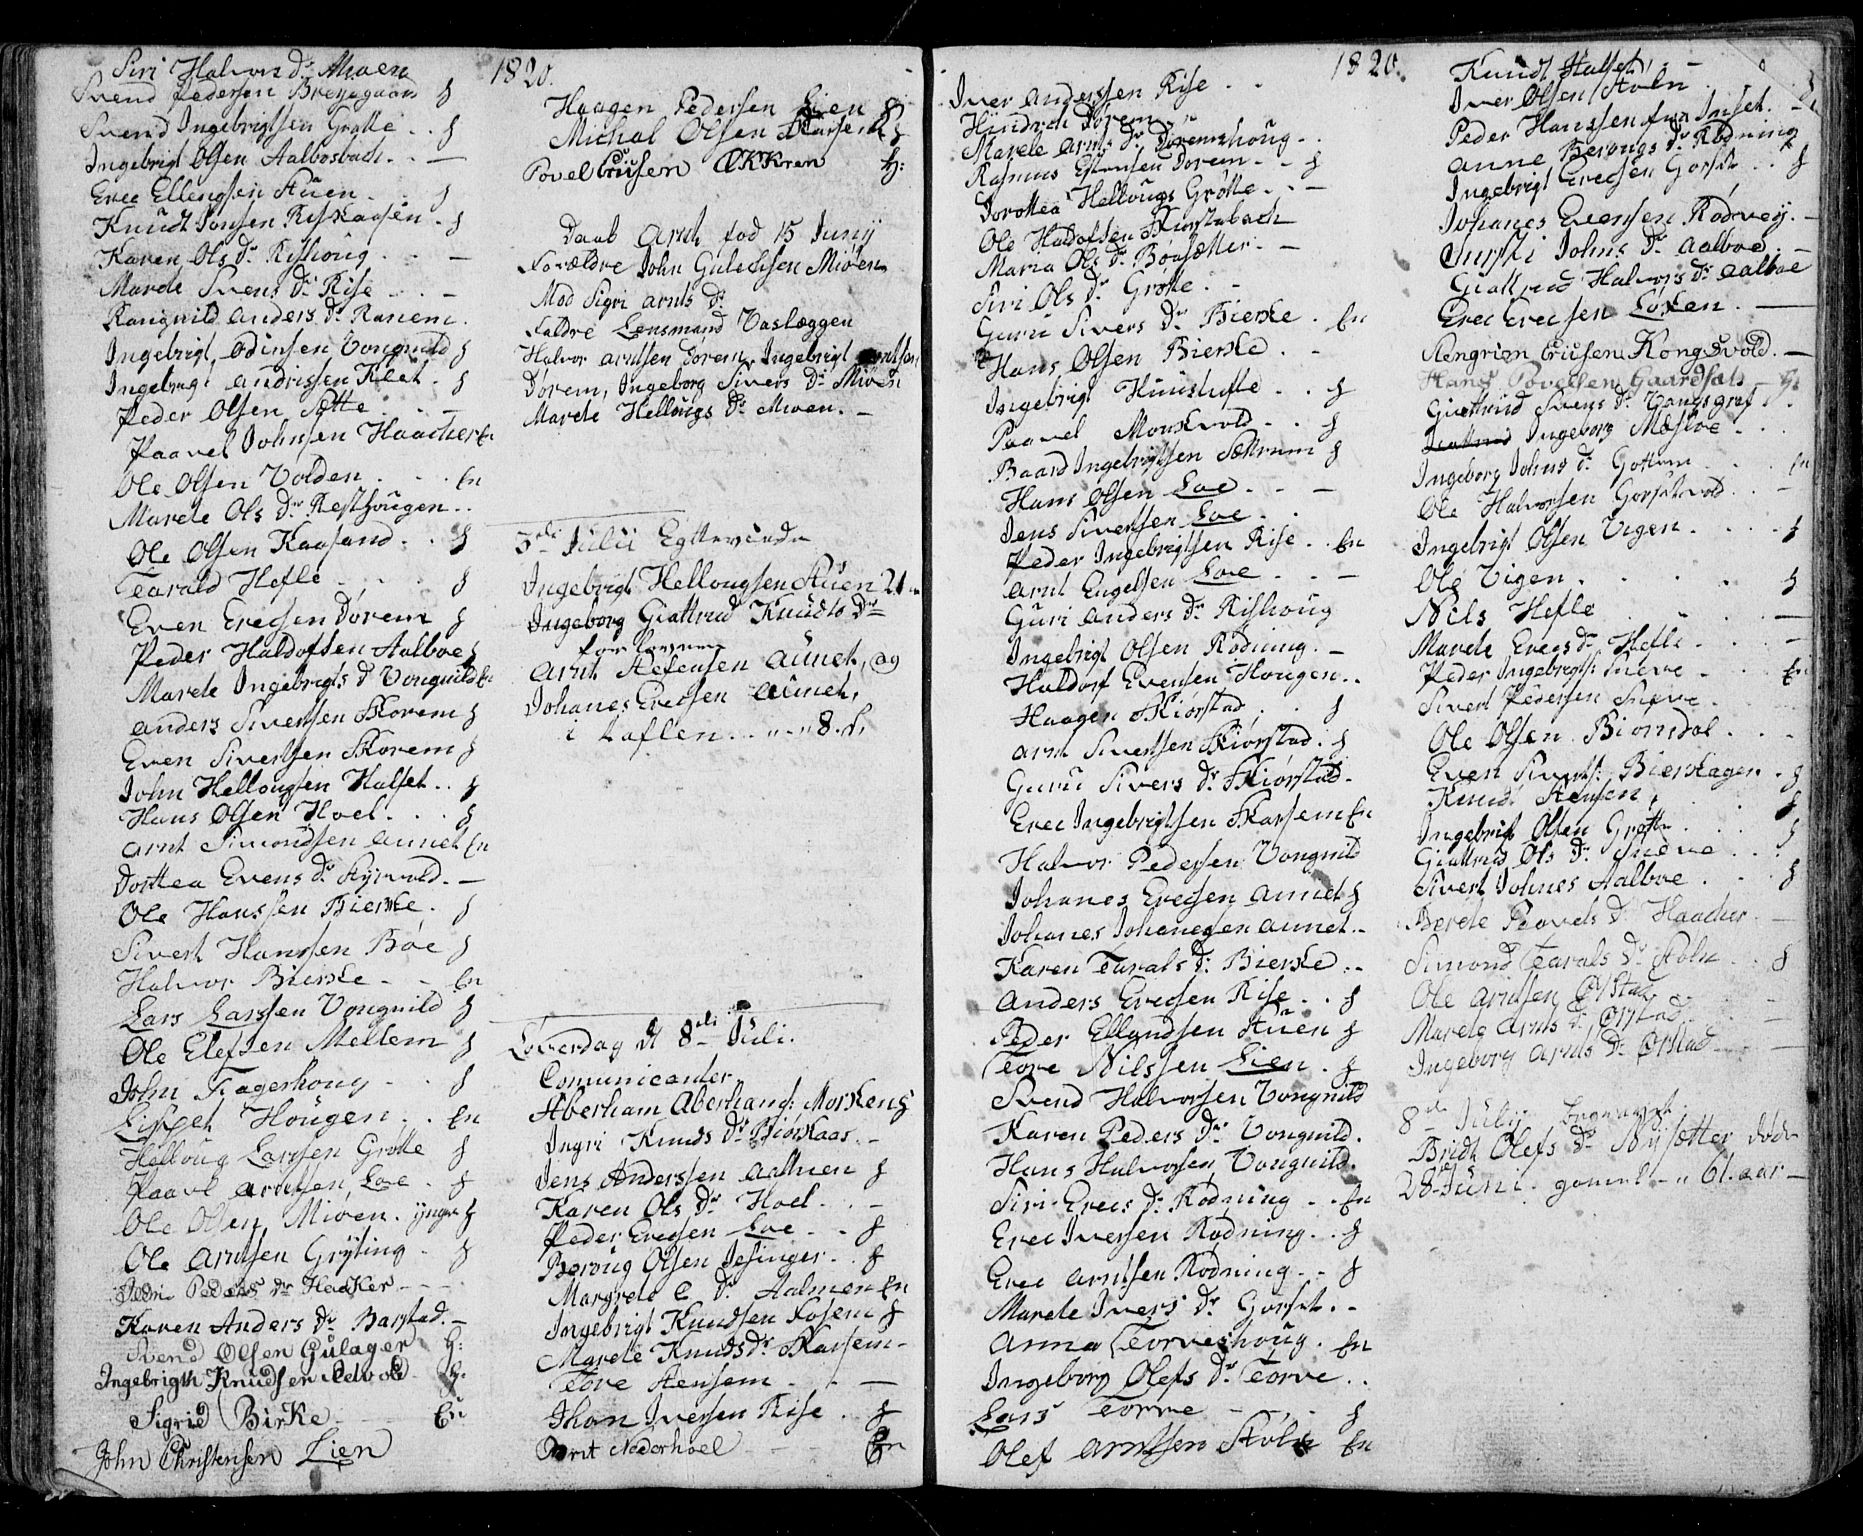 Siri Halvors Dr. Miøen
Svend Pedersen Bregsgaard g
Svend Ingebrigtsen Grøtte . . g
Ingebrigt Olsen Aalbosbach . . —
Erec Ellengsen Stuen . . g
Knudt Jonsen Rishaagen . g
Karen Ols Dr. Rishoug . . —
Marete Svens Dr. Rise . . . —
Rangnild Anders Dr. Ranem .
Ingebrigt Odinsen Vongnild g
Ingebrigt Andrissen Klet . g
Peder Olsen Sætte . . . —
Paavel Johnsen Haacker En
Ole Olsen Volden . . . En
Marete Ols Dr. Resthougen . .
Ole Olsen Kaasand . . g
Tarald Hefle . . . . g
Even Erecsen Dørem g
Peder Haldofsen Aalboe g
Marete Ingebrigts D. Vongnild En
Anders Siversen Skorem g
Even Sivertsen Skorem g
John Hellougsen Halset . . g
Hans Olsen Hoel . . . g
Arnt Simondsen Aunet En
Dorttea Evens Dr. Styrvold . —
Ole Hanssen Bierke . g
Sivert Hanssen Bøe g
Halvor Bierke . - - En
Lars Larssen Vongnild g
Ole Elefsen Mellem g
John Fagerhoug - - . g
Lisbet Hougen . . . En
Helloug Larssen Grøtte g
Paavl Arntsen Loe . g
Ole Olsen Miøen . ynger g
Ole Arntsen Gryting . g
Peders Dr. Hacker - - -
Karen Anders Dr. Barstad . —
Svend Olsen Gulager g:
Ingebrigth Knudsen g:
Sigrid Birke En
John Christensen Lien
1820.
Haagen Pedersen Lien g
Michal Olsen Skarsem g
Povel Crusen Ekkren g:
Daab Arnt fød 15 Juny
Forældre John Gulechsen Miøen
Mod Sigri Arnts Dr.
Faddre Lensmand Vaslæggen
Halvor Arntsen Dørem, Ingebrigt Arntsen
Dørem, Ingeborg Sivers Dr. Miøen
Marete Hellougs Dr. Miøen . —
3die Julii Egtteviede
Ingebrigt Hellougsen Stuen 21
Ingeborg Giattrud Knudts Dr.
forlovere
Arnt Stefensen Aunet, og
Johanes Erecsen Aunet,
i taflen . . . . . 8. s.
Løverdag d 8de Juli.
Comunicanter
Aberham Aberhams: Morkens
Ingri Knuds Dr. Biørkaas . —
Jens Anderssen Aalmen g
Karen Ols Dr. Hoel . . —
Peder Erecsen Loe . . g
Beroug Olsen Jesinger . g
Margrete E. Dr. Aalmen En
Ingebrigt Knudsen Fosem g
Marete Knuds Dr. Skarsem —
Tore Stensem . . —
Jhon Iversen Rise . g
Berit Nederhoel En
1820.
Iver Anderssen Rise . . .
Hindrich Dorem . . "
Marete Arnts Dr. Doremshoug . .
Rasmus Estensen Dorem . . g
Dorottea Hellougs Grøtte . . —
Ole Haldofsen Skiorstabach
Maria Ols Dr. Bøesætter . —
Siri Ols Dr. Grøtte . —
Guru Sivers Dr. Bierke . En
Hans Olsen Bierke . —
Ingebrigt Hunshefle . . g
Paavel Monkvold . . g
Baard Ingebrigtsen Sættrum g
Hans Olsen Loe . . —
Jens Sivertsen Loe . .
Peder Ingebrigtsen Rise . . En
Arnt Engelsen Loe . . . —
Guri Anders Dr. Rishoug
Ingebrigt Olsen Rødning . —
Haldorf Evensen Hougen . .
Haagen Skiorstad . . g
Arnt Sivertsen Skiørstad . g
Guru Sivers Dr. Skiørstad .
Erec Ingebrigtsen Skarsem En
Halvor Pedersen Vongnild
Johanes Erecsen Aunet g
Johanes Johanesen Aunet . —
Karen Tarals Dr. Bierke . —
Anders Erecsen Rise . . g
Peder Ellandsen Stuen g
Tore Nilssen Lien . g
Svend Halvorsen Vongnild
Karen Peders Dr. Vongnild .
Hans Halvorsen Vongnild .
Siri Erecs Dr. Rødning . . En
Erec Iversen Rødning . . g
Erec Arntsen Rødning . . g
Marete Ivers Dr. Gorset . —
Anna Torveshoug . En
Ingeborg Olefs Dr. Torve . .
Lars Torve - . - g
Olef Arntsen Stoln En
Knudt Halset . —
Iver Olsen Stoln . g
Peder Hanssen fra Inset . —
Anne Berougs Dr. Rødning
Ingebrigt Erecsen Gorset . . g
Johanes Evensen Rødvey . —
Johns Dr. Aalboe . —
Giattrud Halvors Dr. Aalboe
Erec Erecsen Løken . —
Stengrim Crusen Kongsvold . —
Hans Povelsen Gaardsat - g:
Giattrud Svens Dr. Vangsgraf . .
Ingeborg Mæsloe . . .
Ingeborg Johns Dr. Gottem . . . En
Ole Halvorsen Gorsetvold . . —
Ingebrigt Olsen Vigen . . . g
Ole Vigen . . . . g
Nils Hefle . . . . —
Marete Erecs Dr. Hefle . . —
Peder Ingebrigts: Sneve . . En
Sivert Pedersen Sneve . .
Ole Olsen Biørndal . . . -
Even Siverts: Bierkagen . g
Knudt Stensen, . . . g
Ingebrigt Olsen Grøtte . . . g
Giattrud Ols Dr. Sneve . . .
Sivert Johnes Aalboe . . . g
Berete Paavels D. Haacker . —
Simond Tarals Dr. Stoln . . g
Ole Arntsen Ørstad
Marete Arnts Dr. Ørstad . . —
Ingeborg Arnts Dr. Ørstad . . —
8de July Begravet.
Bridt Olefs Dr. Nysætter døde
28 Juni . gamel - " 61. aar —